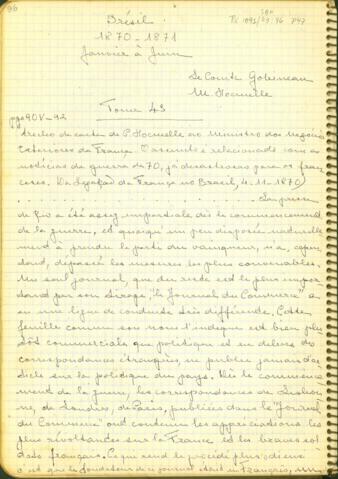 96
Brésil
1870 - 1871
Janvier à Juin
Le Comte Gobineau
M. Hocmelle
Tome 43
pgs 90V-92
trecho da carta de P. Hocmelle ao Ministro dos Negocios
Exteriores da França. O assunto é relacionado com as
notícias da guerra de 70, já desastrosas para os fran
ceses. (Da Legação da França no Brasil, 4-11-1870)
. . . . . . . . . . . . . . . . . . La presse
de Rio a été assez impartiale dès le commencement
de la guerre, et quoiqu'un peu disposée naturelle
ment à prendre le parti du vainqueur, n'a, cepen
dant, dépassé les mesures les plus convenables.
Un seul journal, que du reste est le plus impor
tant par son tirage, "le Journal du Commerce" a
eu une ligne de conduite très différente. Cette
feuille comme son nom l'indique est bien plu
tôt commerciale que politique et en dehors des
correspondances étrangères, ne publie jamais d'ar
ticle sur la politique du pays. Dès le commence
ment de la guerre, les correspondances de Lisbon
ne, de Londres, de Paris, publiées dans le "Journal
du Commerce" ont contenu les appréciations les
plus révoltantes sur la France et les braves sol
dats français. Ce qui rend le procédé plus odieux
c'est que le fondateur de ce journal était un Français,